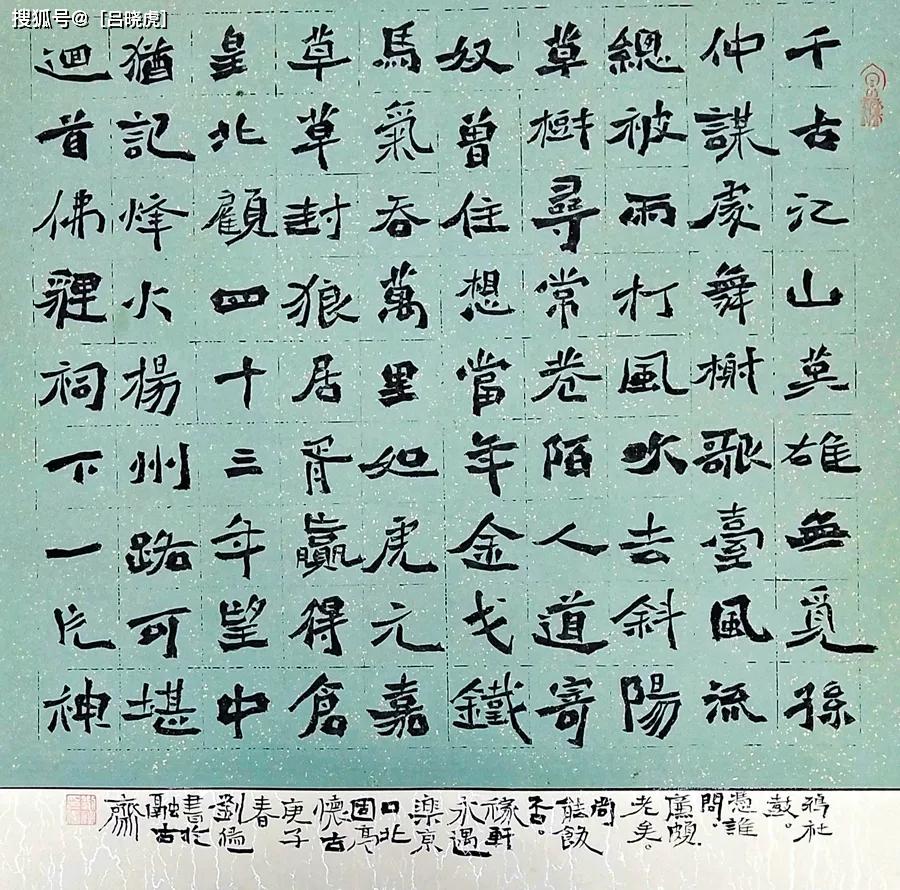 搜狐号@［吕晓虎］
千古江山英雄無覓孫
仲謀處舞榭歌臺風流
總被雨打風吹去斜陽
草樹尋常巷陌人道寄
奴曾住想當年金戈鐵
馬氣吞萬里如虎元嘉
草草封狼居胥贏得倉
皇北顧四十三年望中
猶記烽火楊州路可堪
迴首佛貍祠下一片神
鴉社
鼓。
憑誰
問。
廉頗
老矣。
尚
能飯
否。
稼軒
永遇
樂京
口北
固亭
懷古
庚子
春
劉
書於
融古
齋